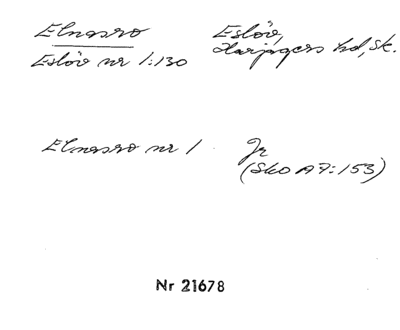 Elnasro
Eslöv,
Eslöv nr 1:130
Harjagers hd, Sk.
Elnasro nr 1
Jr
(Sko A7:153)
Nr 21678